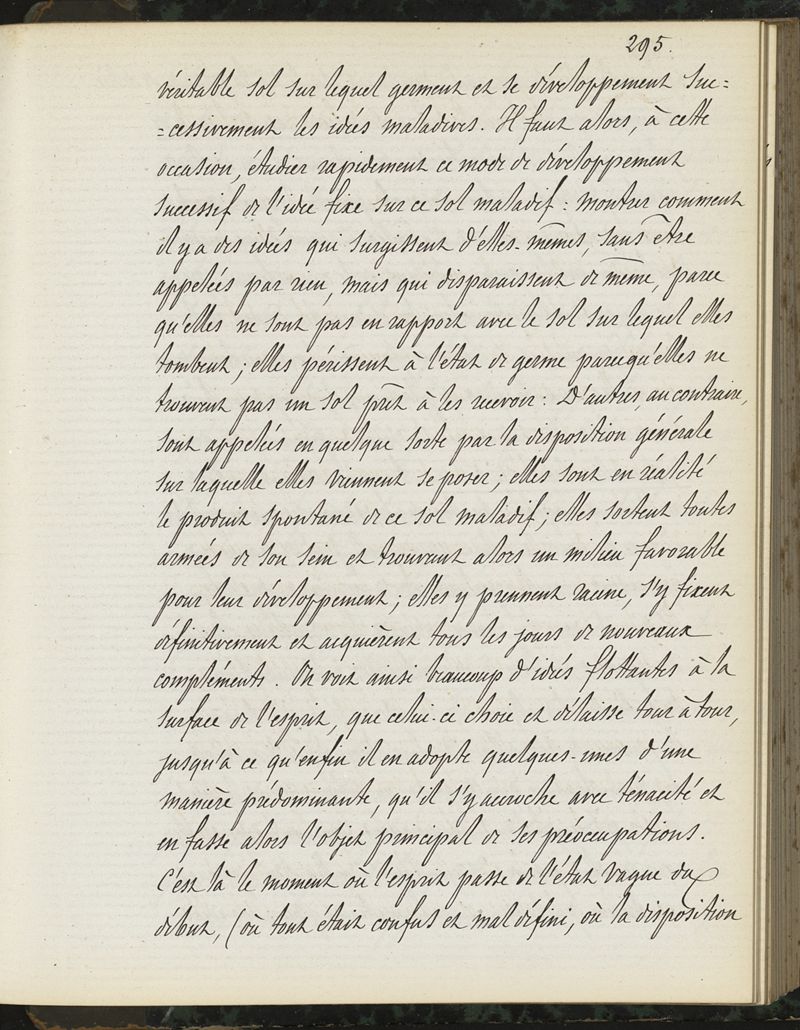 295.
véritable sol sur lequel germent et se développement suc=
=cessivement les idées maladives. Il faut alors, à cette
occasion, étudier rapidement ce mode de développement
successif de l'idée fixe sur ce sol maladif : montrer comment
il y a des idées qui surgissent d'elles-mêmes, sans être
appelées par rien, mais qui disparaissent de même, parce
qu'elles ne sont pas en rapport avec le sol sur lequel elles
tombent ; elles périssent à l'état de germe parcequ'elles ne
trouvent pas un sol prêt à les recevoir : D'autres, au contraire,
sont appelées en quelque sorte par la disposition générale
sur laquelle elles viennent se poser ; elles sont en réalité
le produit spontané de ce sol maladif ; elles sortent toutes
armées de son sein et trouvent alors un milieu favorable
pour leur développement ; elles y prennent racine, s'y fixent
définitivement et acquièrent tous les jours de nouveaux
compléments. On voit ainsi beaucoup d'idées flottantes à la
surface de l'esprit, que celui-ci choie et délaisse tour à tour,
jusqu'à ce qu'enfin il en adopte quelques-unes d'une
manière prédominante, qu'il s'y accroche avec ténacité et
en fasse alors l'objet principal de ses préoccupations.
C'est là le moment où l'esprit passe de l'état vague du
début, (où tout était confus et mal défini, où la disposition